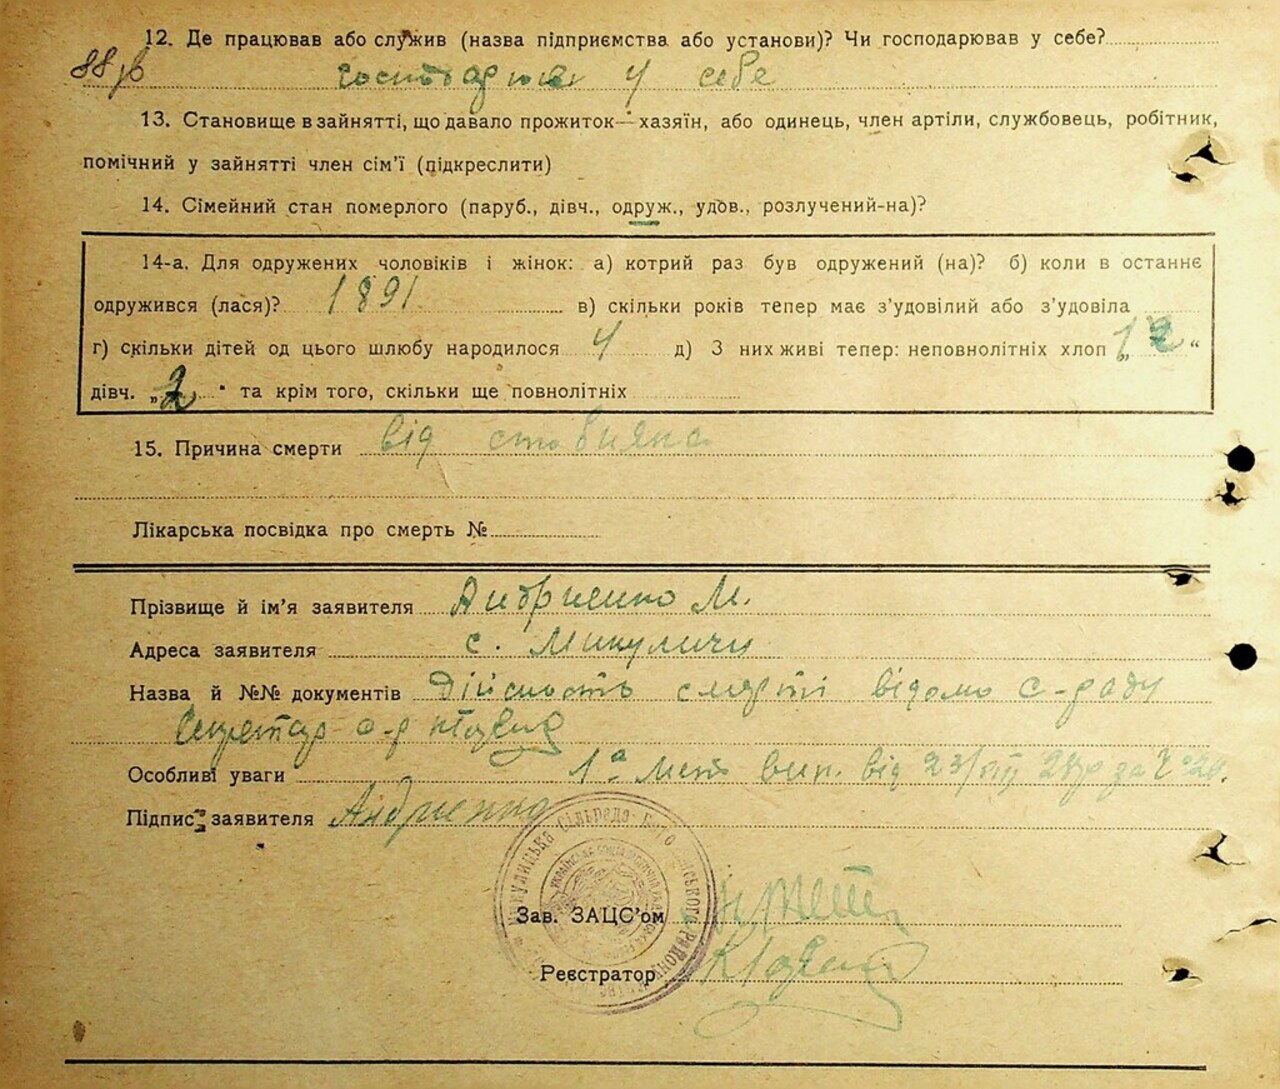 12. Де працював або служив (назва підприємства або установи)? Чи господарював у себе?
88 господарював у себе
13. Становище в зайнятті, що давало прожиток—хазяїн, або одинець, член артіли, службовець, робітник,
помічний у зайнятті член сім’ї (підкреслити)
14. Сімейний стан померлого (паруб., дівч., одруж., удов., розлучений-на)?
14-а. Для одружених чоловіків і жінок: а) котрий раз був одружений (на)? б) коли в останнє
одружився (лася)? 1891 в) скільки років тепер має з’удовілий або з’удовіла
г) скільки дітей од цього шлюбу народилося 4 д) З них живі тепер: неповнолітніх хлоп „ 2 “
дівч. „ 2 “ та крім того, скільки ще повнолітніх
15. Причина смерти від
Лікарська посвідка про смерть №
Прізвище й ім’я заявителя Андриенко М.
Адреса заявителя с. Микуличи
Назва й №№ документів Дійсность смерті відомо с-раду
Секретар с-р
Особливі уваги 1а вип. від 23/VIII 28р за №
Підпис заявителя Андриенко
Зав. ЗАЦС’ом
Реєстратор